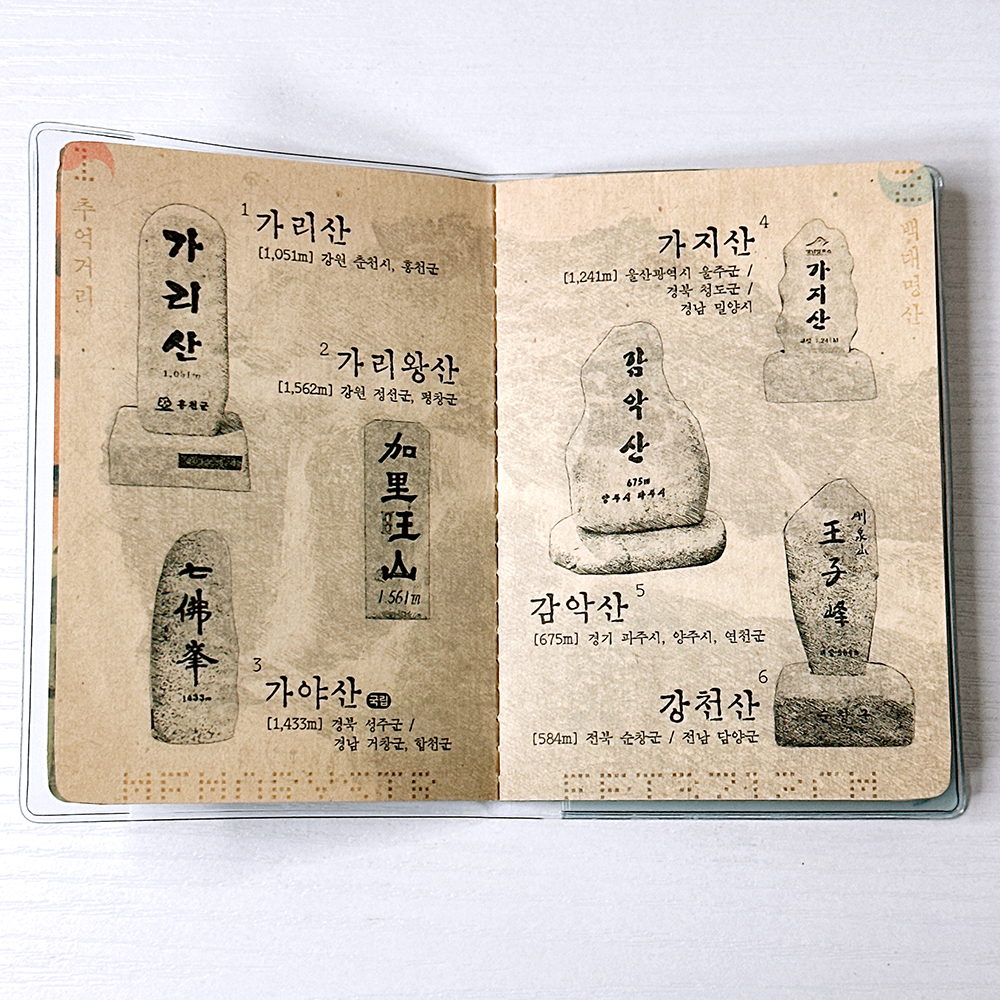 추억거리
가
리
산
1,051m
홍천군
1 가리산
[1,051m] 강원 춘천시, 홍천군
2 가리왕산
[1,562m] 강원 정선군, 평창군
加
里
王
山
1,561m
七
佛
峯
1433m
3 가야산 국립
[1,433m] 경북 성주군 /
경남 거창군, 합천군
백대명산
가지산 4
[1,241m] 울산광역시 울주군 /
경북 청도군 /
경남 밀양시
가
지
산
감
악
산
675m
양주시 파주시
감악산 5
[675m] 경기 파주시, 양주시, 연천군
剛泉山
王
子
峰
순창군
강천산 6
[584m] 전북 순창군 / 전남 담양군